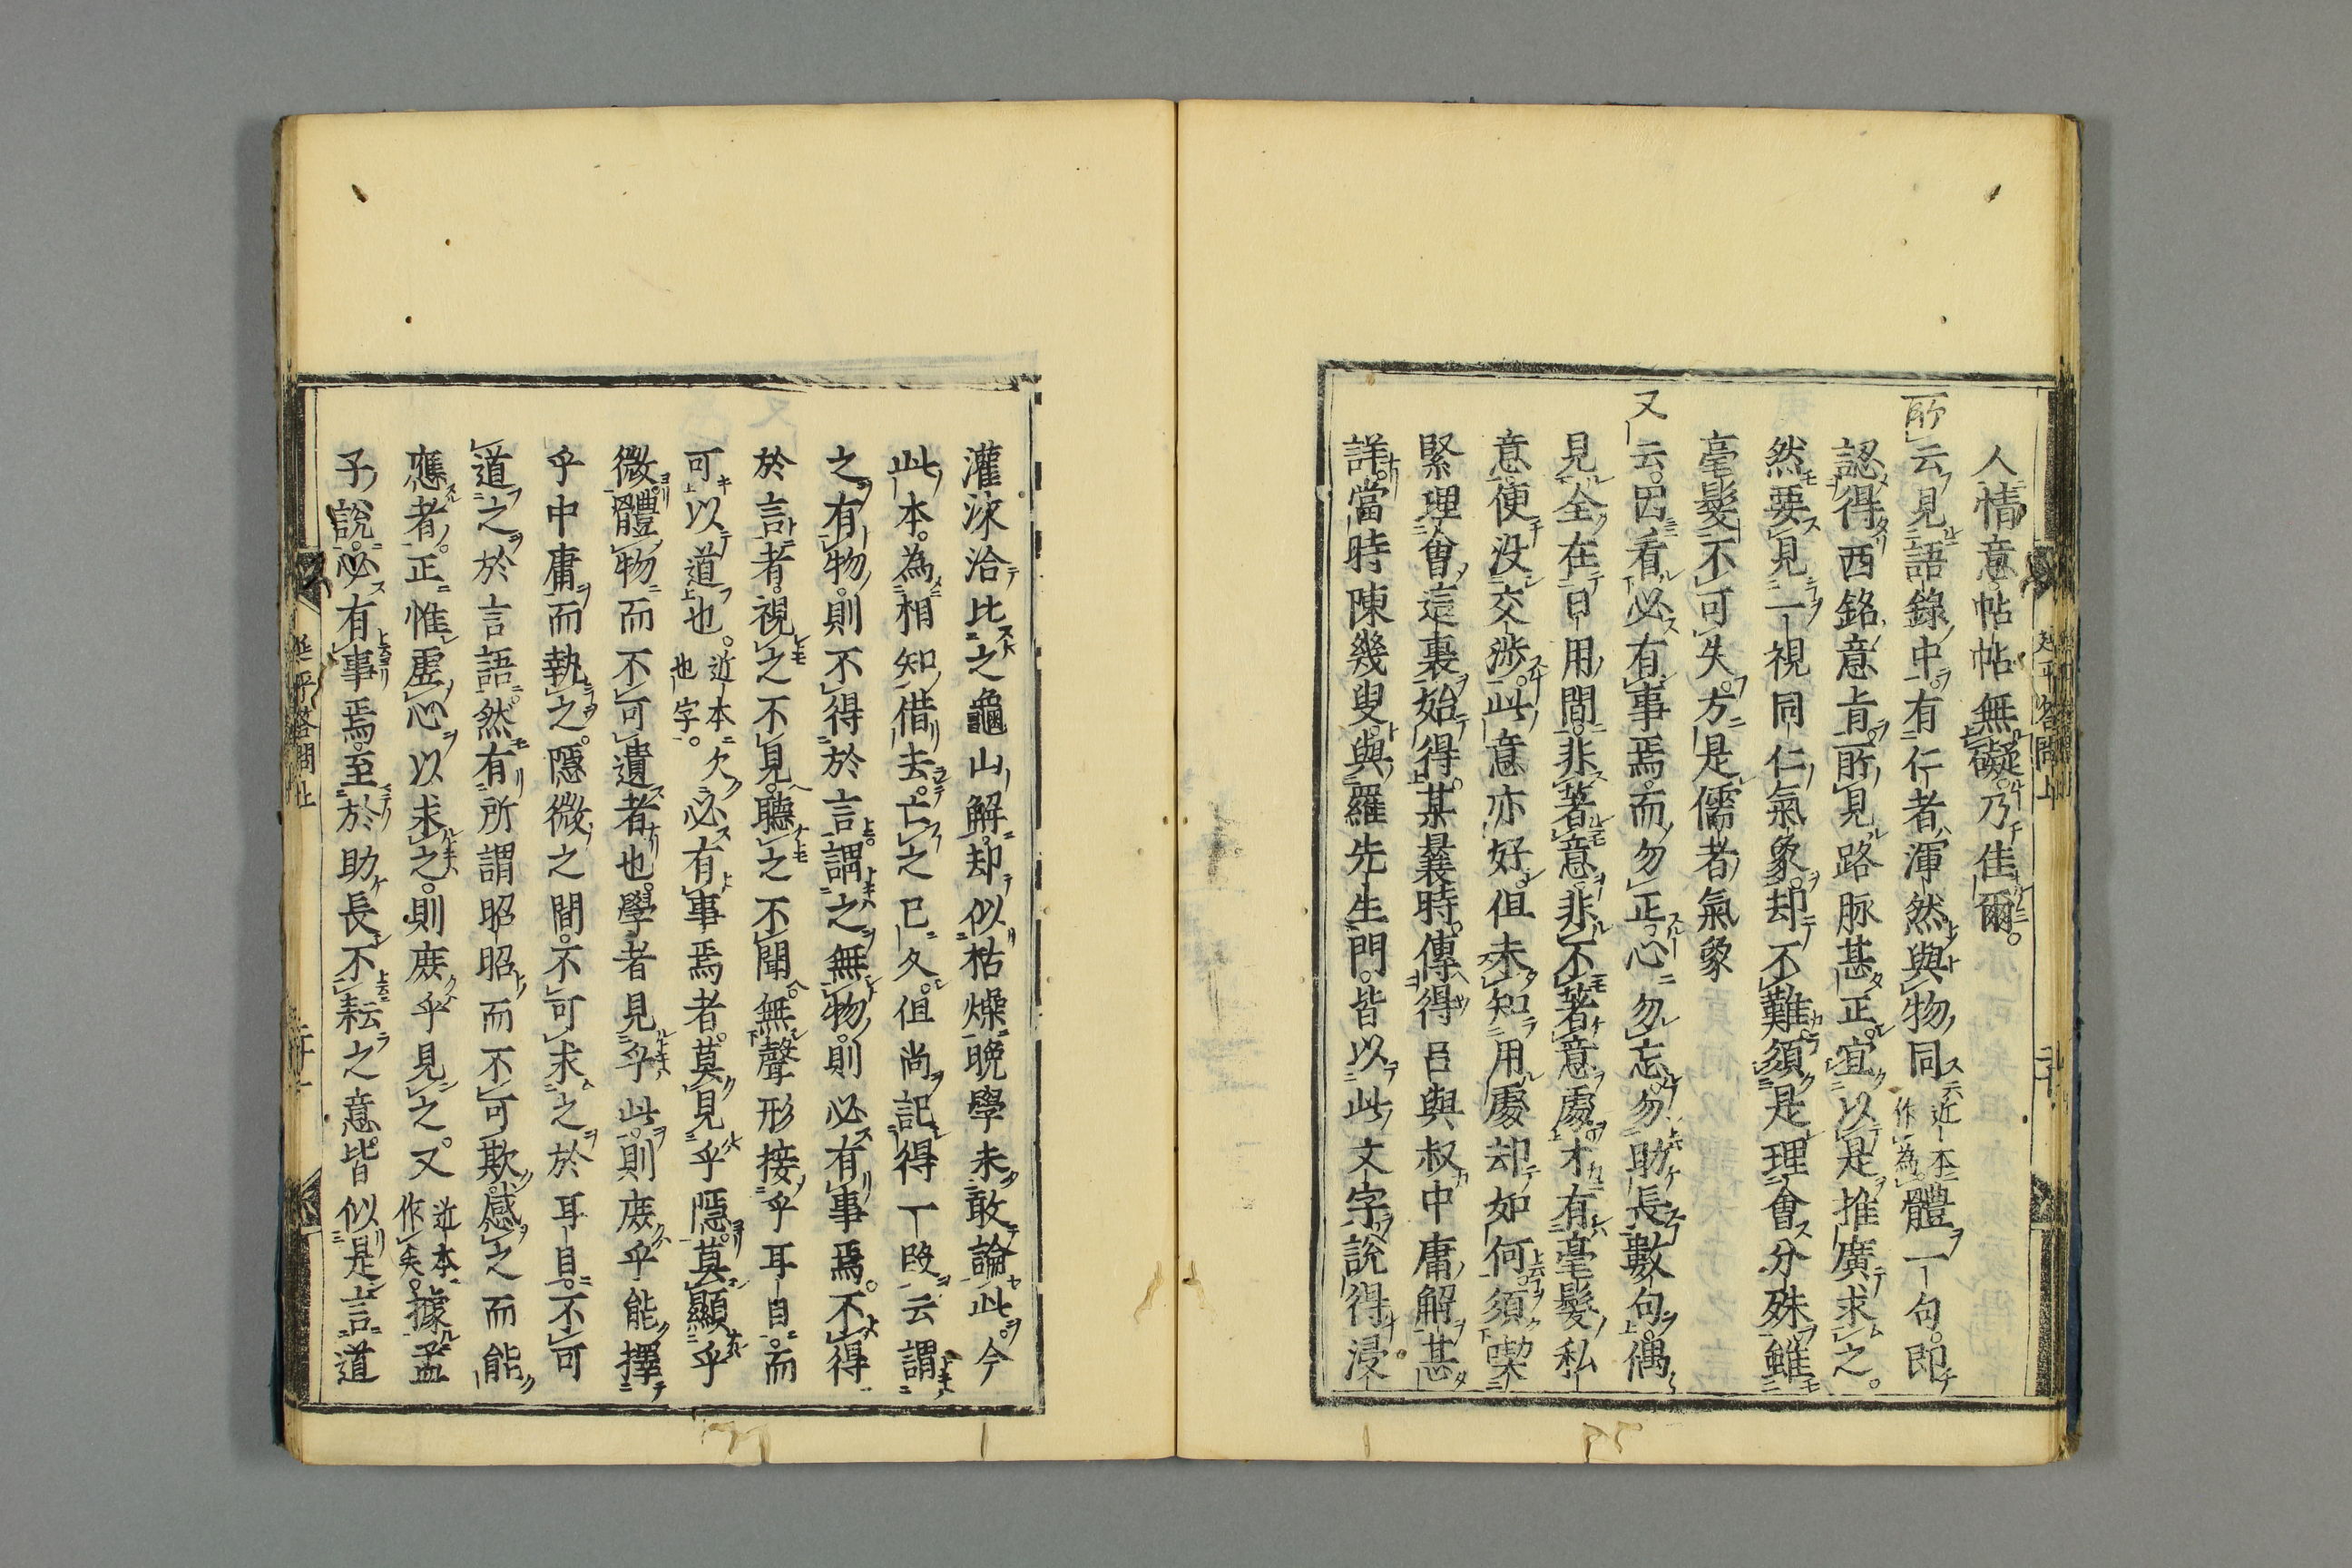 人情意。帖帖無礙。乃佳爾。
所云見語錄中。有仁者渾然與物同近本作為。體一句。即
認得西銘意旨。所見路脉甚正。宜以是推廣求之。
然要見一視同仁氣象。却不難。須是理會分殊。雖
毫髮不可失。方是儒者氣象
又云。因看必有事焉。而勿正。心勿忘。勿助長數句。偶
見全在日用間。非著意。非不著意處。才有毫髮私
意。便没交渉。此意亦好。但未知用處却如何。須喫
緊理會這裏始得。某曩時。傳得呂與叔中庸解甚
詳。當時陳幾叟。與羅先生門。皆以此文字說得浸
灌浹洽。比之龜山解。却似枯燥。晚學未敢論此。今
此本。為相知借去。亡之已久。但尚記得一段云。謂
之有物。則不得於言。謂之無物。則必有事焉。不得
於言者。視之不見。聽之不聞。無聲形接乎耳目。而
可以道也。近本欠也字。必有事焉者。莫見乎隱。莫顯乎
微。體物而不可遺者也。學者見乎此。則庻乎能擇
乎中庸。而執之。隱微之間。不可求之於耳目。不可
道之於言語。然有所謂昭昭而不可欺。感之而能
應者。正惟虛心以求之。則庻乎見之。又近本作矣。據孟
子說。必有事焉。至於助長不耘之意。皆似是言道
延平答問上
二十一